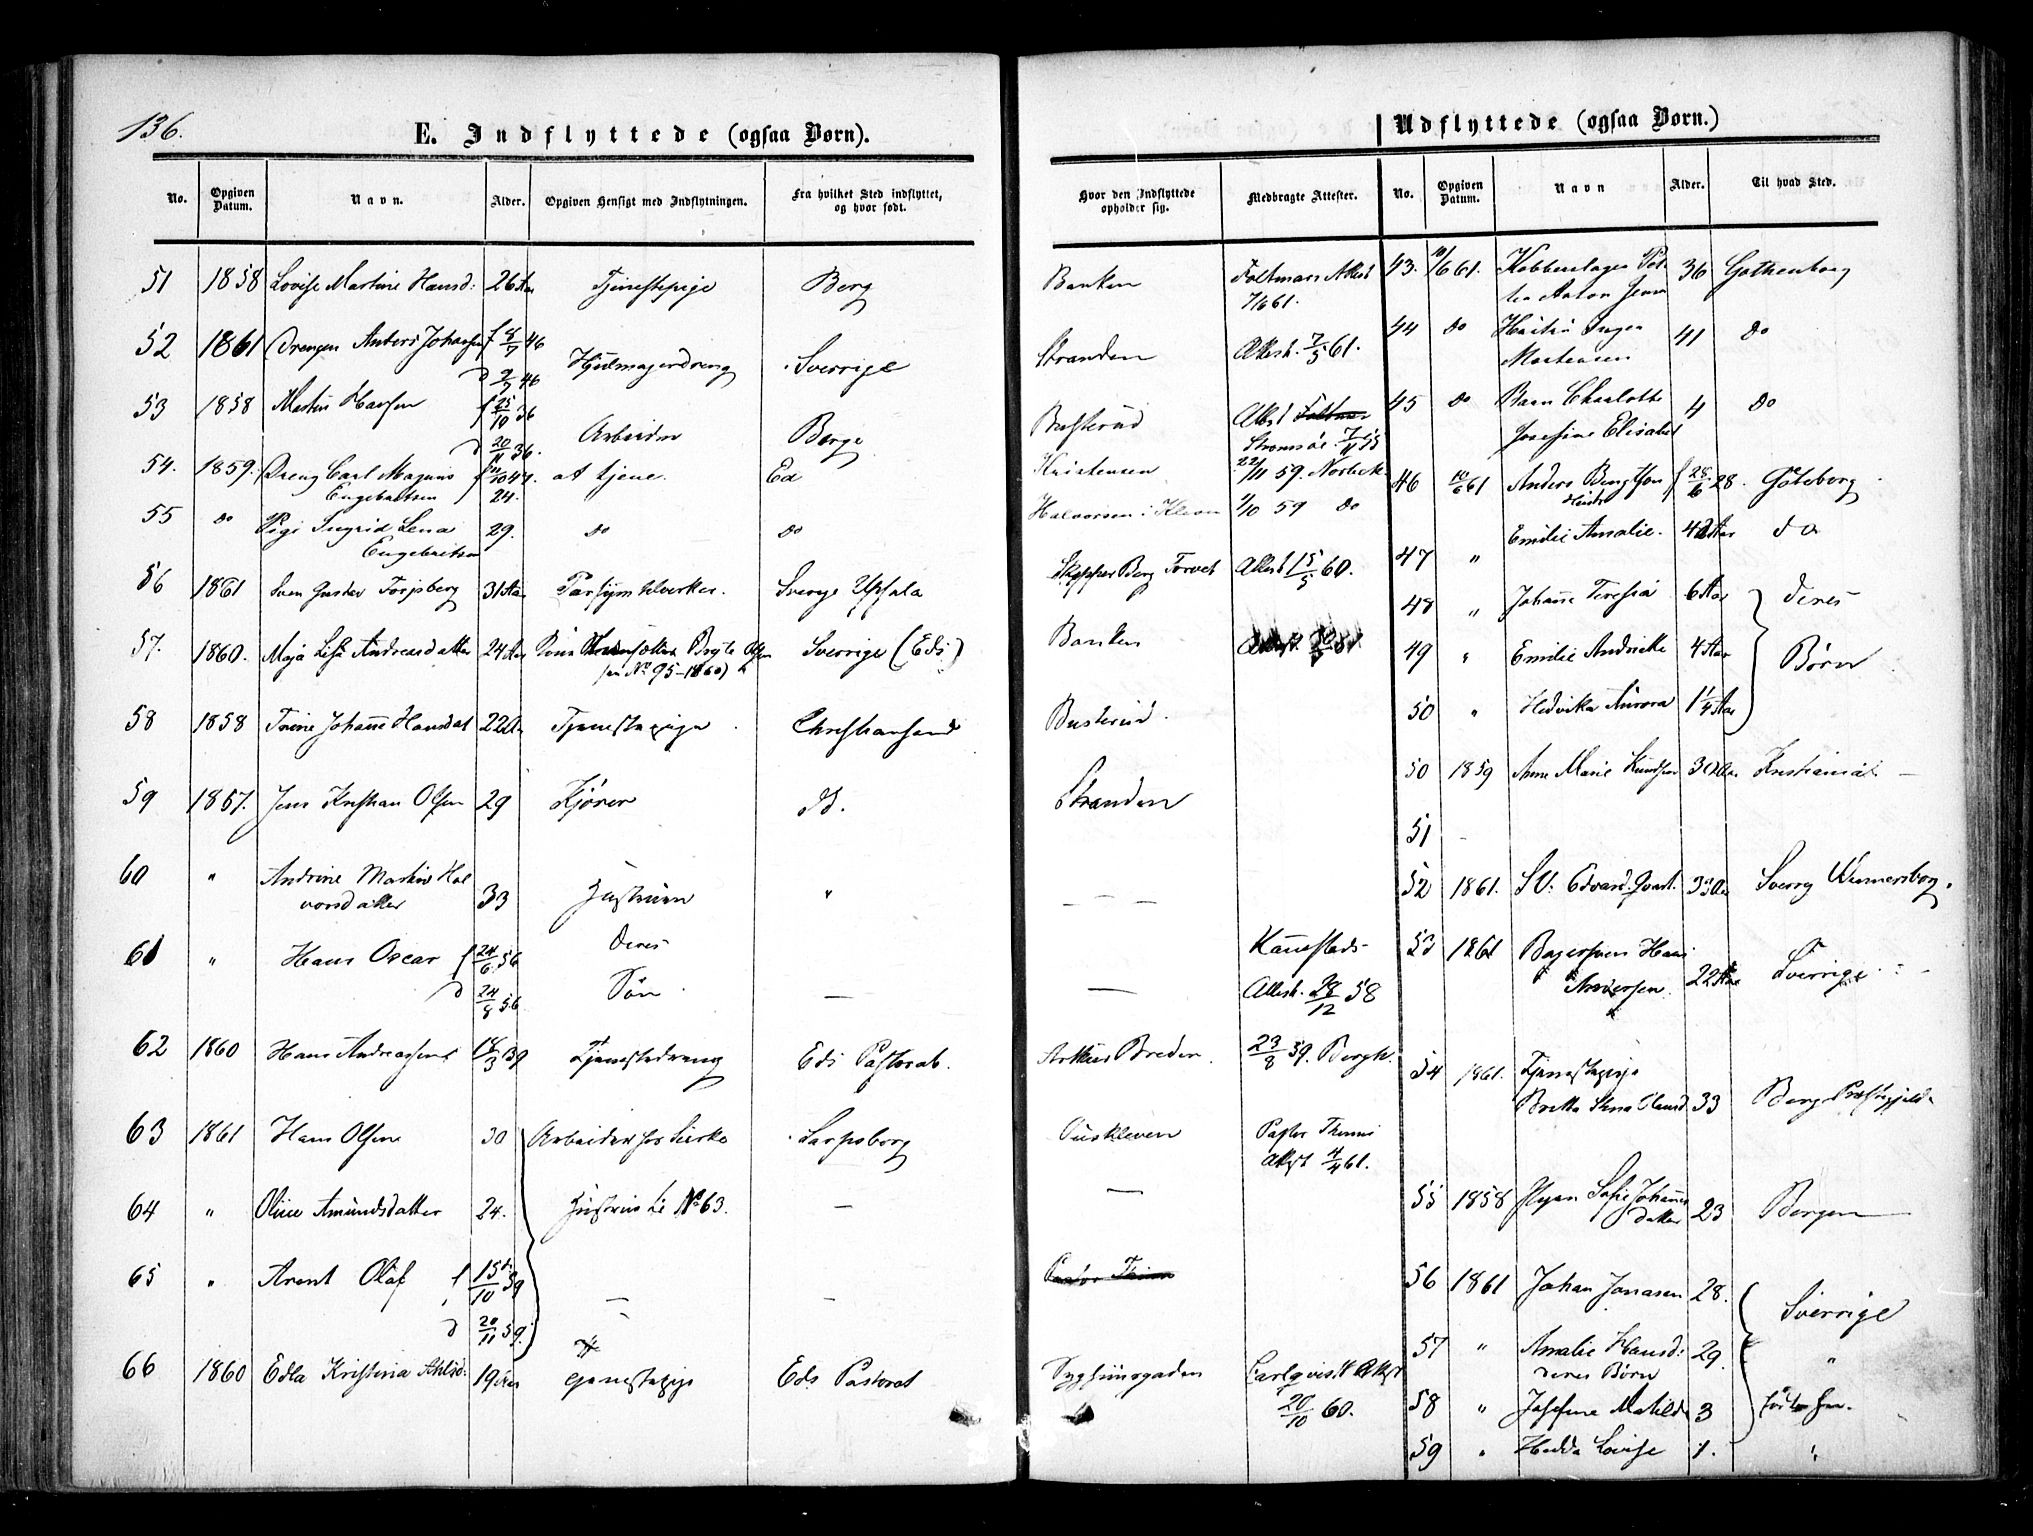 136.
E. Indflyttede (ogsaa Børn).
No. Opgiven Datum. Navn. Alder. Opgiven Hensigt med Indflytningen. Fra hvilket Sted indflyttet, og hvor født.
51 1858 Lovise Martine Hansd: 26 Aar Tjenestepige Berg
52 1861 Drengen Anders Johansen f 8/7 46 Hjulmagerdreng Sverrige
d 9/7 46
53 1858 Martin Hansen f 25/10 36 Arbeider Berge
d 20/11 36.
54. 1859. Dreng Carl Magnus f 11/10 47. at tjene. Ed
Engebretsen 24.
55 do Pige Ingrid Lena 29. do do
Engebretsen
56 1861 Sven Gustav Forssberg 31 Aar Sverige Upsala
57. 1860. Maja Lisa Andreasdatter 24 Aar Sverrige (Eds)
No 95-1860)
58 1858 Trine Johanne Hansdat 22 Aa Tjenestepige Christiansand
59 1857. Jens Kristian Olsen 29 Kjører do.
60 " Andrine Martine Hal
vorsdatter 33 Hustruen "
61 " Hans Oscar f 24/6 56 Deres
d 24/8 56 Søn —
62 1860 Hans Andreassen 18/3 39 Tjenestedreng Eds Pastorat.
63 1861 Hans Olsen 30 Arbeider Sarpsborg
64 " Oline Amundsdatter 24. Hustru til No 63. —
65 " Arent Olaf f 15/10 59 — —
d 20/11 59.
66 1860 Edla Kristina 19 Aar Tjenestepige Eds Pastorat
Udflyttede (ogsaa Børn.)
Hvor den Indflyttede opholder sig. Medbragte Attester. No. Opgiven Datum. Navn Alder. Til hvad Sted.
Banken Foltmars Attest 7/6 61. 43. 10/6 61. Kobberslager Pet
ter Anton 36 Gothenborg
Stranden Attest. 7/5 61. 44 do Hustru Inger
Mortensen 41 do
Busterud Attest
Strømsøe. 45 do Barn Charlotte
Josefine Elisabet 4 do
Kristensen 22/11 59 Norbeck 46 10/6 61 Anders Bengtson f 25/6 28. Gøteborg
Halvorsen i Kleven 1/10 59 do
47 " Emilie Amalie. 42 Aar do
Skipper Berg Torvet Attest 15/5 60.
48 " Johanne Teresia 6 Aar Deres
Banken 49 " Emilie Andrikke 4 Aar Børn
50 " Hedvika Aurora 1 1/4 Aar
Busterud.
50 1859 Anne Marie Knudsen 30 Aar Kristiania
Stranden
51 -
— — — 52 1861. Edvard Qvart. 33 Aar Sverrg Wenersborg.
—
Attest. 28/12 58 53 1861 Hans
Andersen. 22 Aar Sverrige
Breden. 23/8 59. Bergh. 54 1861. Tjenestepige
Britta Stena Olausd 33 Berg Præstegjeld
Ouskleven Pastor Thrane
Attest 4/4 61.
— 55 1858 Pigen Sofie Johannes
datter 23 Bergen
56 1861 Johan Jonasen 28. Sverrige
57 " Amalie Hansd: 29. "
deres Børn
Carlqvist Attest
20/10 60. 58 " Josefine Matilde 3
59 " Hedda Lovise 1. "